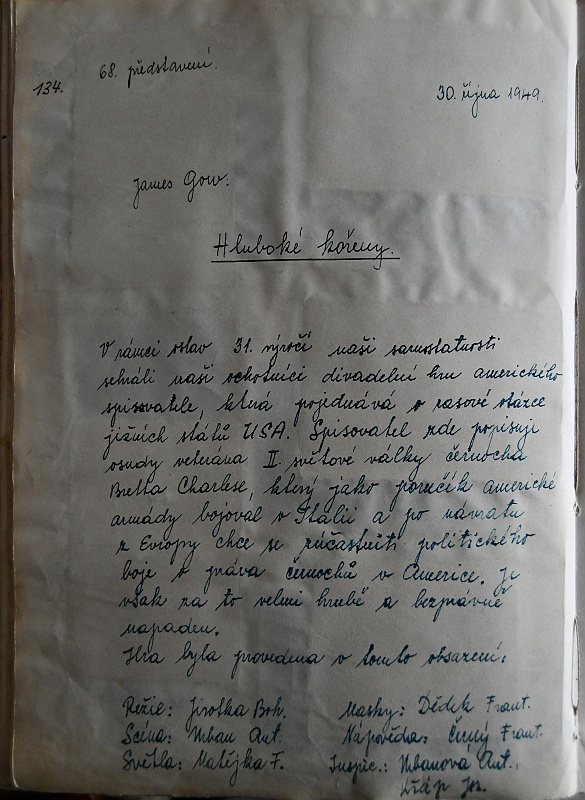 68. představení.
134.
30. října 1949.
James Gow:
Hluboké kořeny.
V rámci oslav 31. výročí naší samostatnosti
sehráli naši ochotníci divadelní hru amerického
spisovatele, která pojednává o rasové otázce
jižních států USA. Spisovatel zde popisuje
osudy veterána II. světové války černocha
Bretta Charlese, který jako poručík americké
armády bojoval v Italii a po návratu
z Evropy chce se zúčastniti politického
boje o práva černochů v Americe. Je
však za to velmi hrubě a bezprávně
napaden.
Hra byla provedena v tomto obsazení:
Režie: Jirotka Boh. Masky: Dědek Frant.
Scéna: Urban Ant. Nápověda: Černý Frant.
Světla: Matějka F. Inspic.: Urbanová Ant.,
Jos.